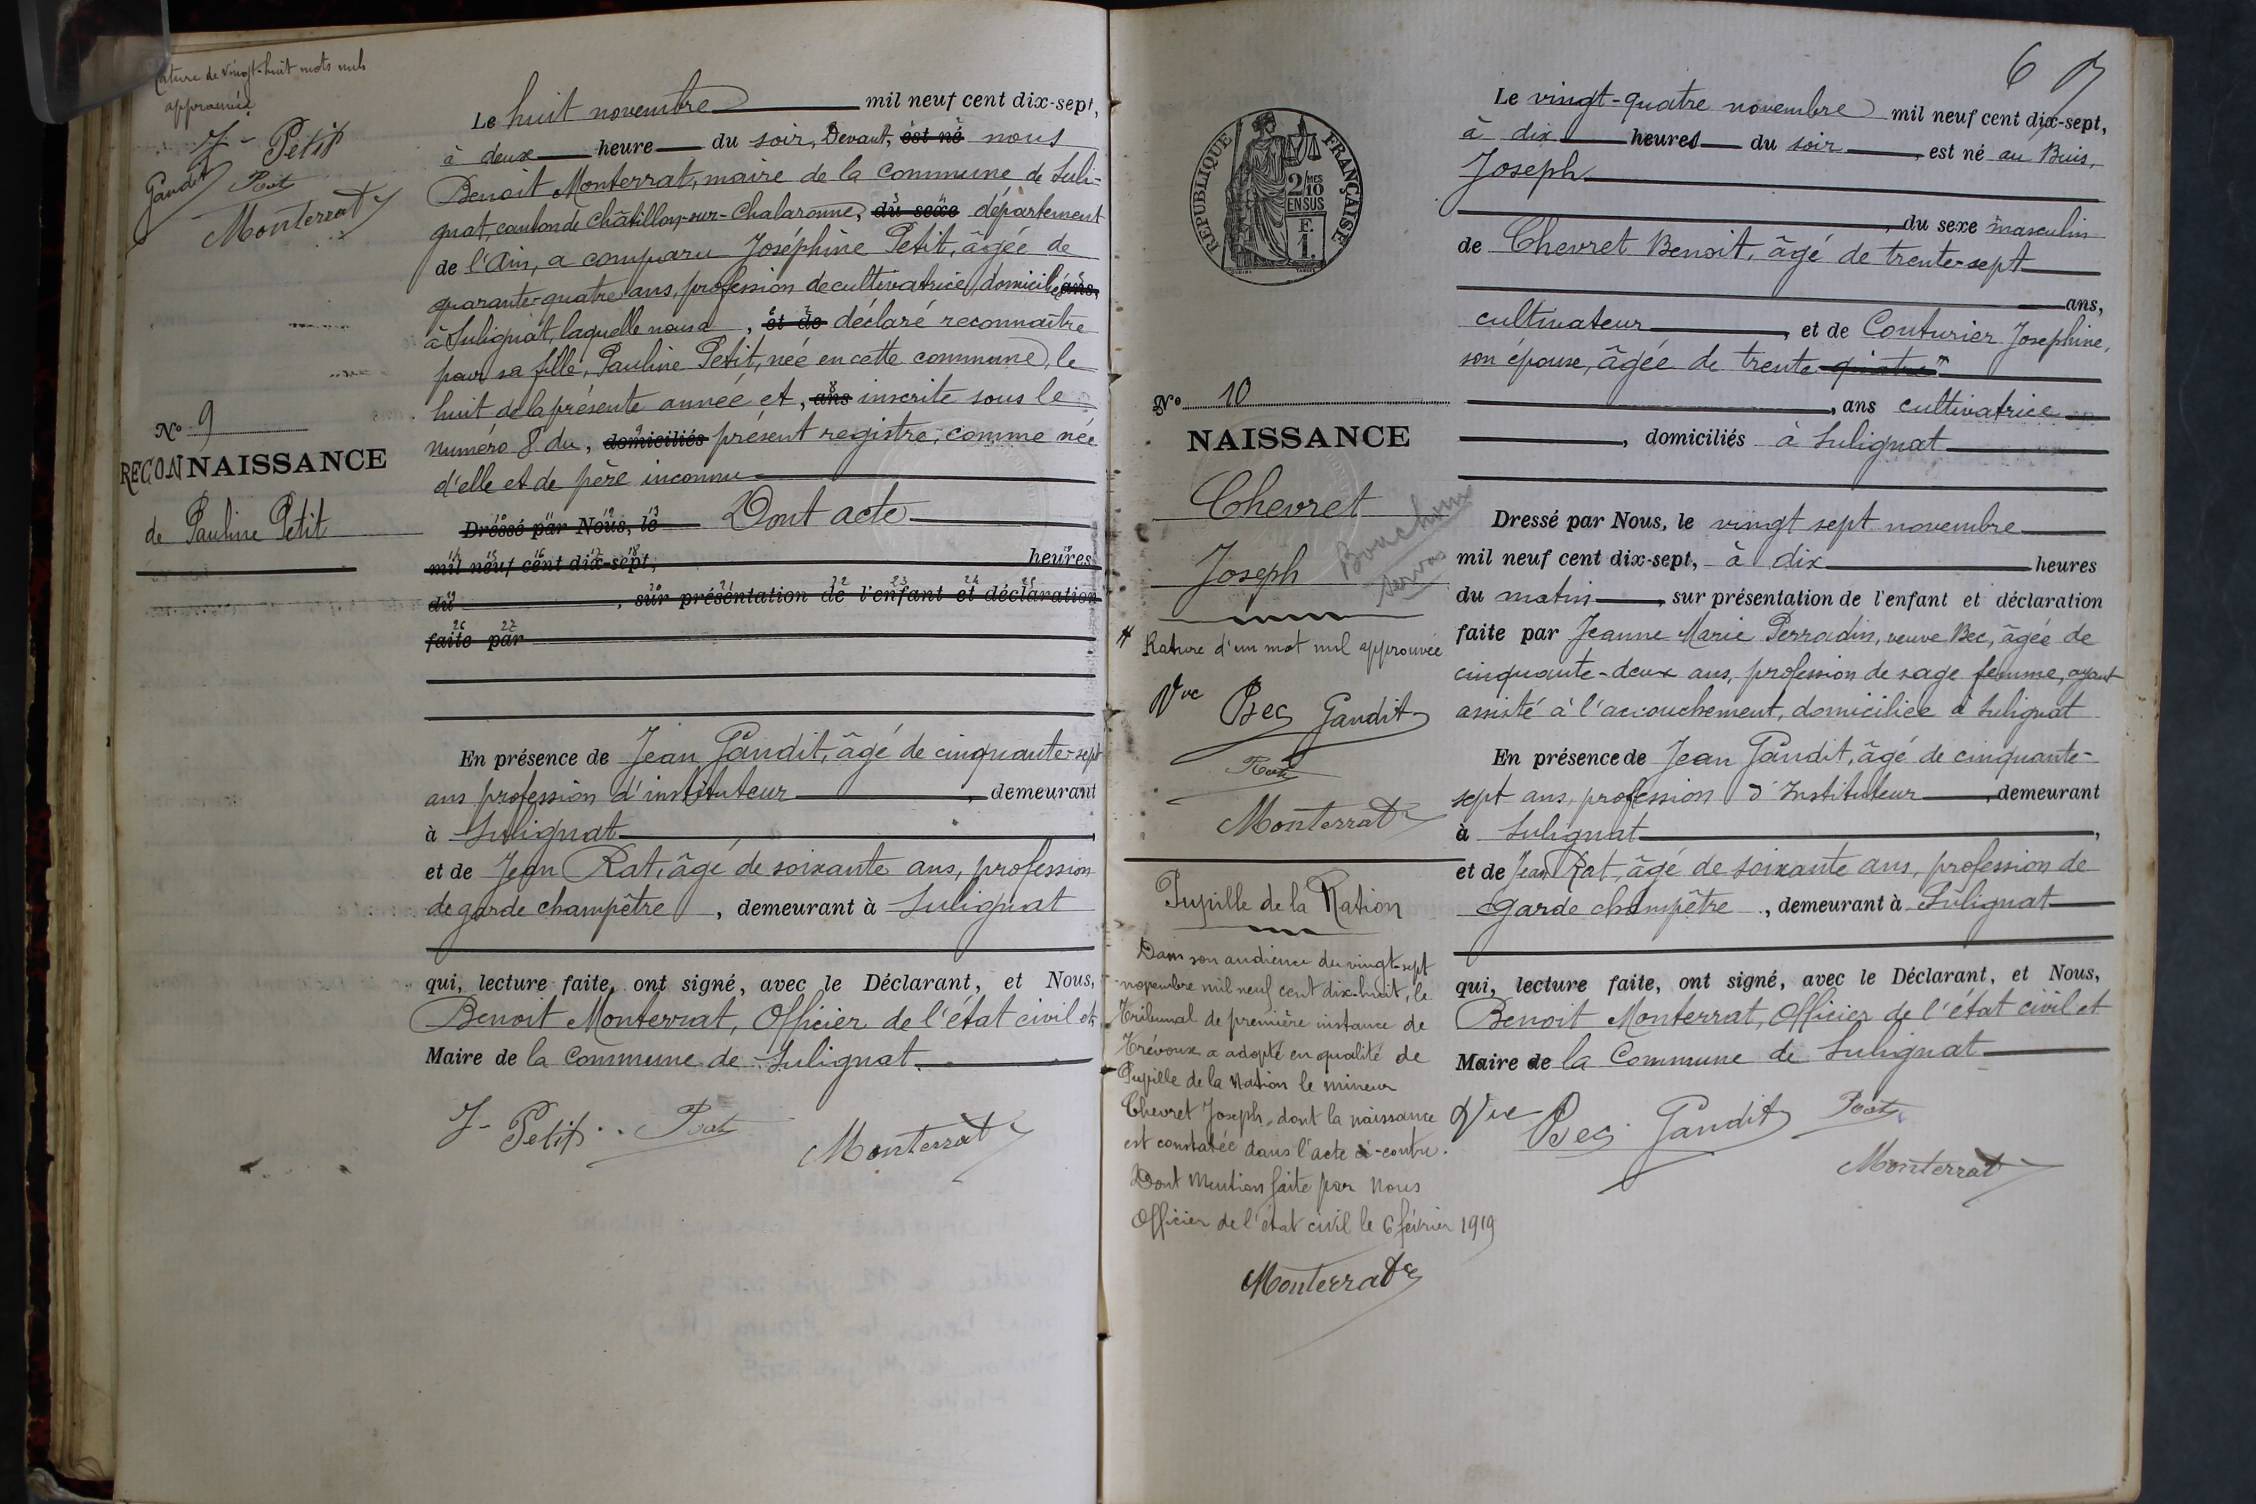 Rature de vingt-huit mots nuls
approuvée
J- Petit
Gandit Rat
Monterrat
No 9
RECONNAISSANCE
de Pauline Petit
Le huit novembre mil neuf cent dix-sept,
à deux heure du soir, Devant, est né nous
Benoit Monterrat, maire de la commune de Suli-
gnat, canton de Châtillon-sur-Chalaronne, du sexe département
de l'Ain, a comparu Joséphine Petit, âgée de
quarante-quatre ans, profession de cultivatrice, domiciliée ans,
à Sulignat, laquelle nous a , et de déclaré reconnaître
pour sa fille, Pauline Petit, née en cette commune, le
huit de la présente année et, ans inscrite sous le
numéro 8 du, domiciliés présent registre, comme née
d'elle et de père inconnu
Dressé par Nous, le Dont acte
mil neuf cent dix-sept, heures
du , sur présentation de l'enfant et déclaration
faite par
En présence de Jean Gandit, âgé de cinquante-sept
ans profession d'instituteur , demeurant
à Sulignat ,
et de Jean Rat, âgé de soixante ans, profession
de garde champêtre , demeurant à Sulignat
qui, lecture faite, ont signé, avec le Déclarant, et Nous,
Benoit Monterrat, Officier de l'état civil et
Maire de la Commune de Sulignat.
J- Petit Rat
Monterrat
6
REPUBLIQUE FRANÇAISE
2/10 MES
EN SUS
F.
1.
No 10
NAISSANCE
Chevret
Joseph
Bouchoux
Servas
# Rature d'un mot nul approuvée
Vve Bec Gandit
Rat
Monterrat
Pupille de la Nation
Dans son audience du vingt-sept
novembre mil neuf cent dix-huit, le
Tribunal de première instance de
Trévoux a adopté en qualité de
Pupille de la Nation le mineur
Chevret Joseph, dont la naissance
est constatée dans l'acte ci-contre.
Dont Mention faite par Nous
Officier de l'état civil le 6 février 1919
Monterrat
Le vingt-quatre novembre mil neuf cent dix-sept,
à dix heures du soir , est né au Buis,
Joseph
, du sexe masculin
de Chevret Benoit, âgé de trente-sept
ans,
cultivateur , et de Couturier Josephine,
son épouse, âgée de trente-quatre #
, ans cultivatrice
, domiciliés à Sulignat
Dressé par Nous, le vingt sept novembre
mil neuf cent dix-sept, à dix heures
du matin , sur présentation de l'enfant et déclaration
faite par Jeanne Marie Perradin, veuve Bec, âgée de
cinquante-deux ans, profession de sage femme, ayant
assisté à l'accouchement, domiciliée à Sulignat
En présence de Jean Gandit, âgé de cinquante-
sept ans, profession d'Instituteur , demeurant
à Sulignat ,
et de Jean Rat, âgé de soixante ans, profession de
garde champêtre , demeurant à Sulignat
qui, lecture faite, ont signé, avec le Déclarant, et Nous,
Benoit Monterrat, Officier de l'état civil et
Maire de la Commune de Sulignat
Vve Bec Gandit Rat
Monterrat